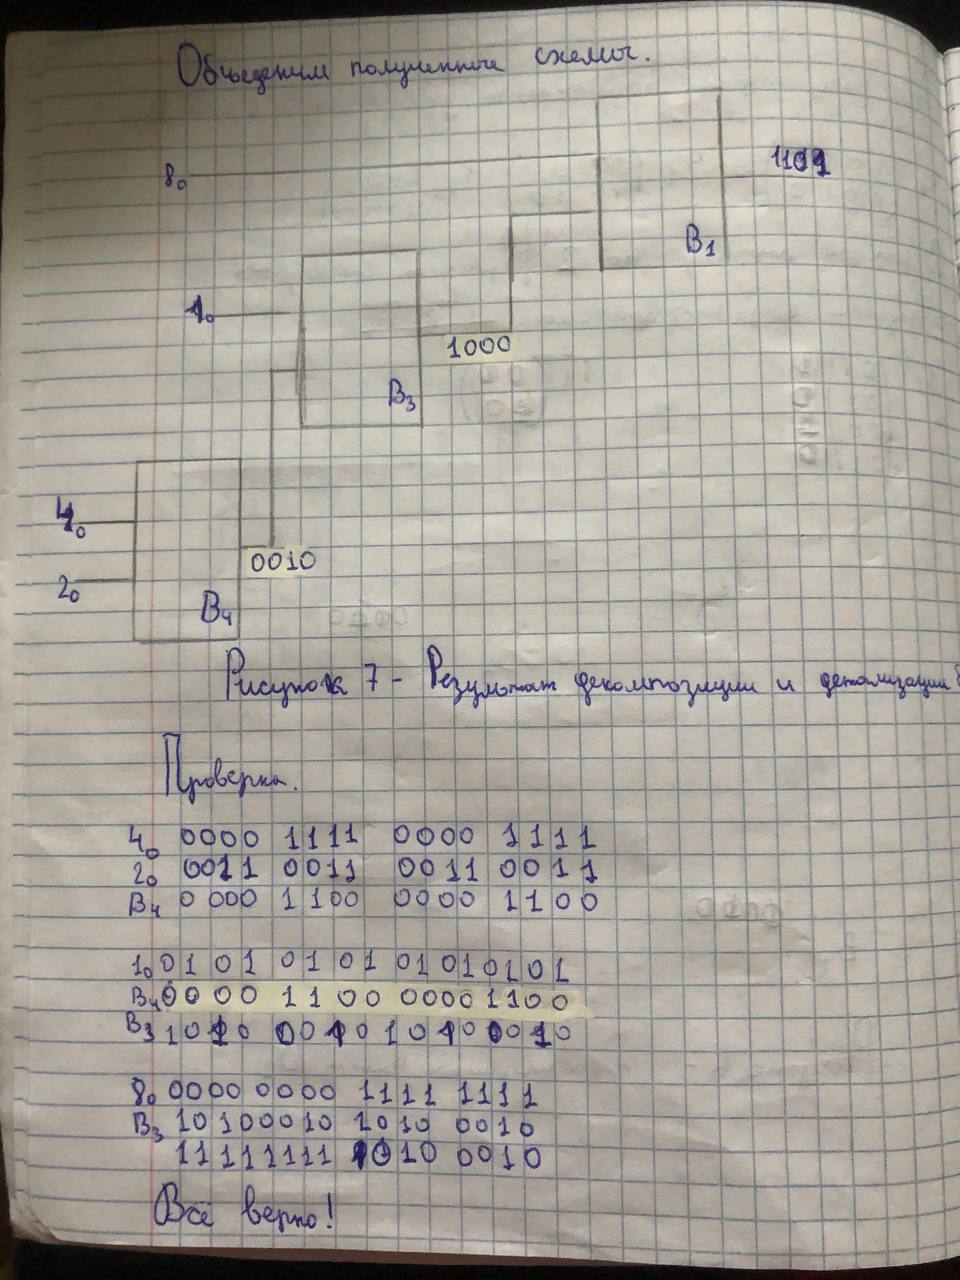 Объеденим полученные схемы.
8₀
1101
B₁
1₀
1000
B₃
4₀
0010
2₀
B₄
Рисунок 7 - Результат декомпозиции и детализации
Проверка.
4₀ 0000 1111 0000 1111
2₀ 0011 0011 0011 0011
B₄ 0000 1100 0000 1100
1₀ 0101 0101 0101 0101
B₄ 0000 1100 0000 1100
B₃ 1010 0010 1010 0010
8₀ 0000 0000 1111 1111
B₃ 1010 0010 1010 0010
1111 1111 1010 0010
Всё верно!